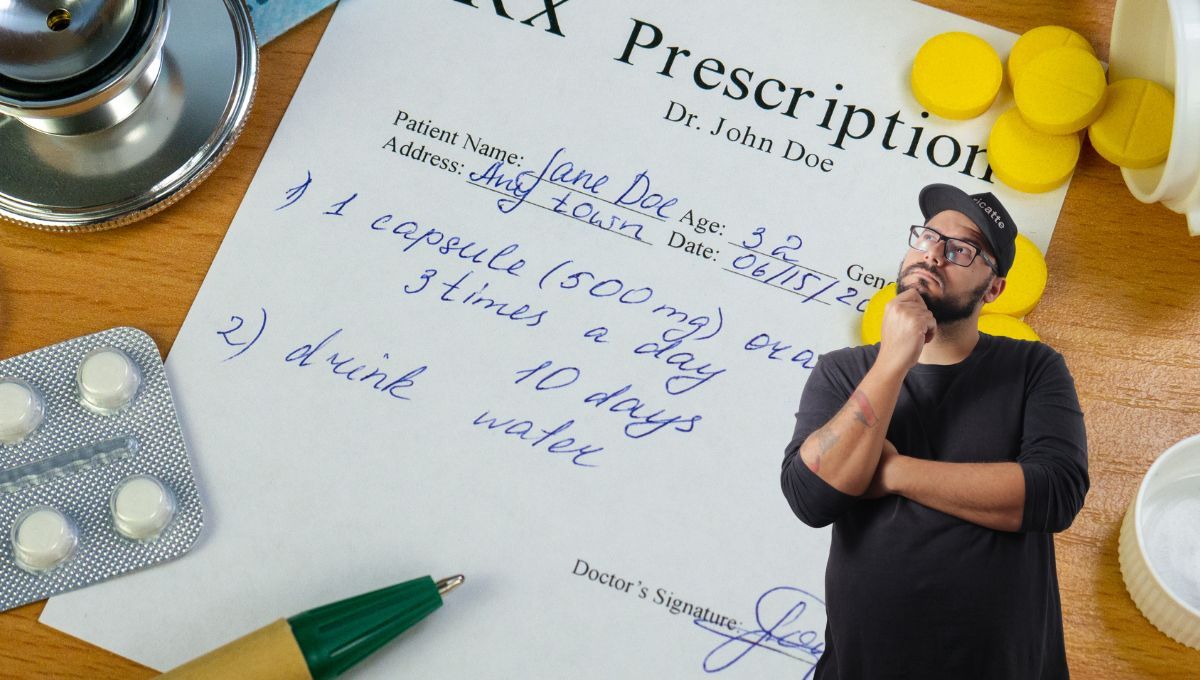 RX Prescription
Dr. John Doe
Patient Name: Jane Doe Age: 32
Address: Any town Date: 06/15/20
1) 1 capsule (500 mg) ora
3 times a day
10 days
2) drink water
Doctor's Signature: